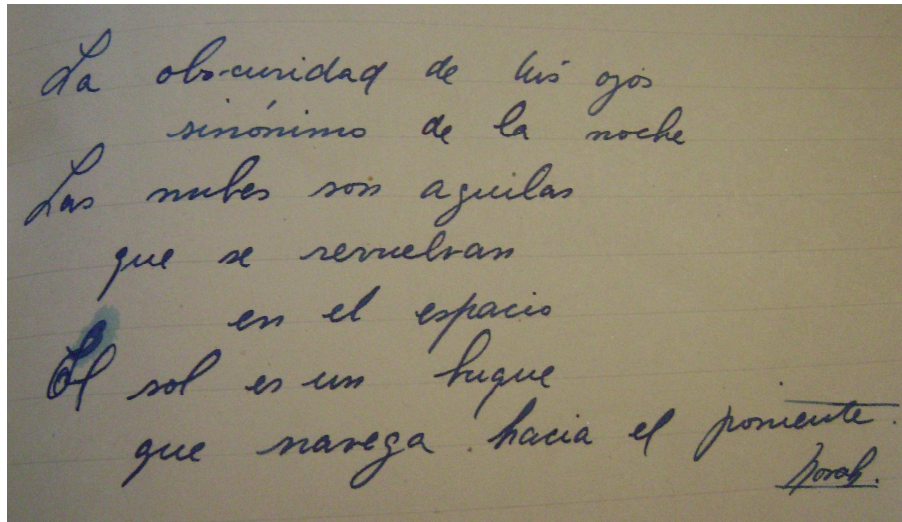 La obscuridad de tus ojos
sinónimo de la noche
Las nubes son aguilas
que se revuelvan
en el espacio
El sol es un buque
que navega hacia el poniente.
Norah.